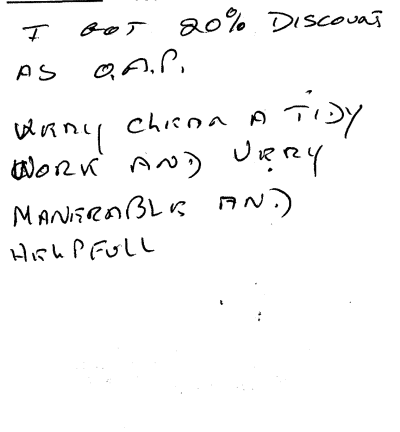 I GOT 20% DISCOUNT
AS O.A.P.
VERRY CLEAN A TIDY
WORK AND VERRY
MANERABLE AND
HELPFULL